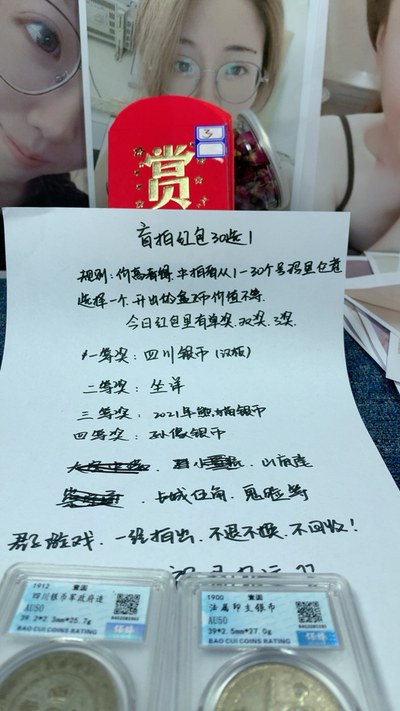 3
赏
盲拍红包30选1
规则:价高者得,中拍者从1—30个号码里任意
选择一个,开出的盒币价值不等.
今日红包里有单奖,双奖,3奖.
一等奖:四川银币(汉版)
二等奖:坐洋
三等奖:2021年熊猫银币
四等奖:孙像银币
长城伍角.鬼脸等
群游戏.一经拍出.不退不换.不回收!
1912 壹圆
四川银币军政府造
AU50
39.2*2.3mm*25.7g
BAO CUI COINS RATING
1900 壹圆
法属印支银币
AU50
39*2.5mm*27.0g
BAO CUI COINS RATING